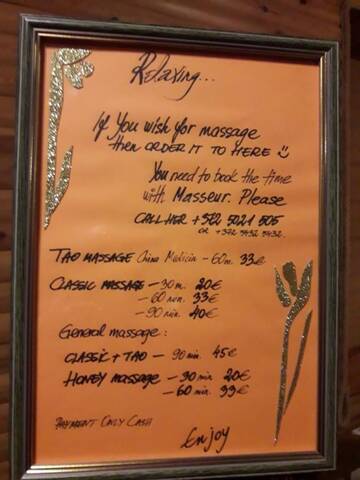 Relaxing...
If You wish for massage
then ORDER IT TO HERE
You need to book the time
with Masseur. Please
CALL HER +372 5021 505
or +372 5432 5432.
TAO MASSAGE China Medicin - 60m. 33€
CLASSIC MASSAGE - 30m. 20€
- 60 min. 33€
- 90 min. 40€
General massage:
CLASSIC + TAO - 90 min. 45€
HONEY MASSAGE - 30 min. 20€
- 60 min. 33€
PAYMENT ONLY CASH
Enjoy